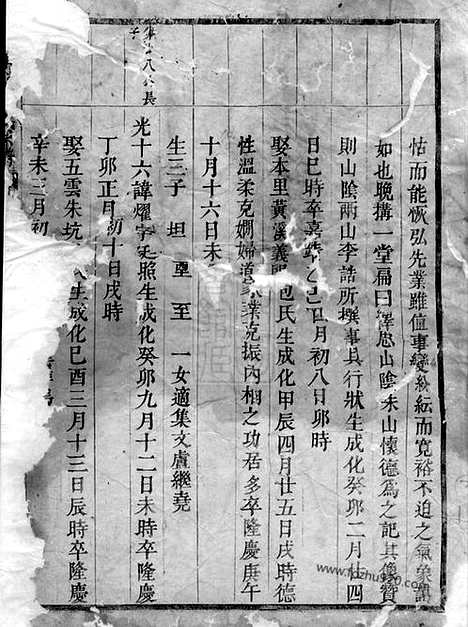 怙而能恢弘先業雖值事變紛紜而寬裕不迫之氣象
如也晚搆一堂扁曰繹思山陰朱山懷德為之記其像贊
則山陰兩山李誥所撰事具行狀生成化癸卯二月廿四
日巳時卒嘉靖乙巳四月初八日卯時
娶本里黃溪義門包氏生成化甲辰四月廿五日戌時德
性溫柔克嫻婦道家業克振內相之功居多卒隆慶庚午
十月十六日未
生三子 坦 垔 至 一女適集文盧繼堯
集十八公長
子
光十六諱燿字廷照生成化癸卯九月十二日未時卒隆慶
丁卯正月初十日戌時
娶五雲朱坑 氏生成化己酉三月十三日辰時卒隆慶
辛未三月初
www.fozhu920.com